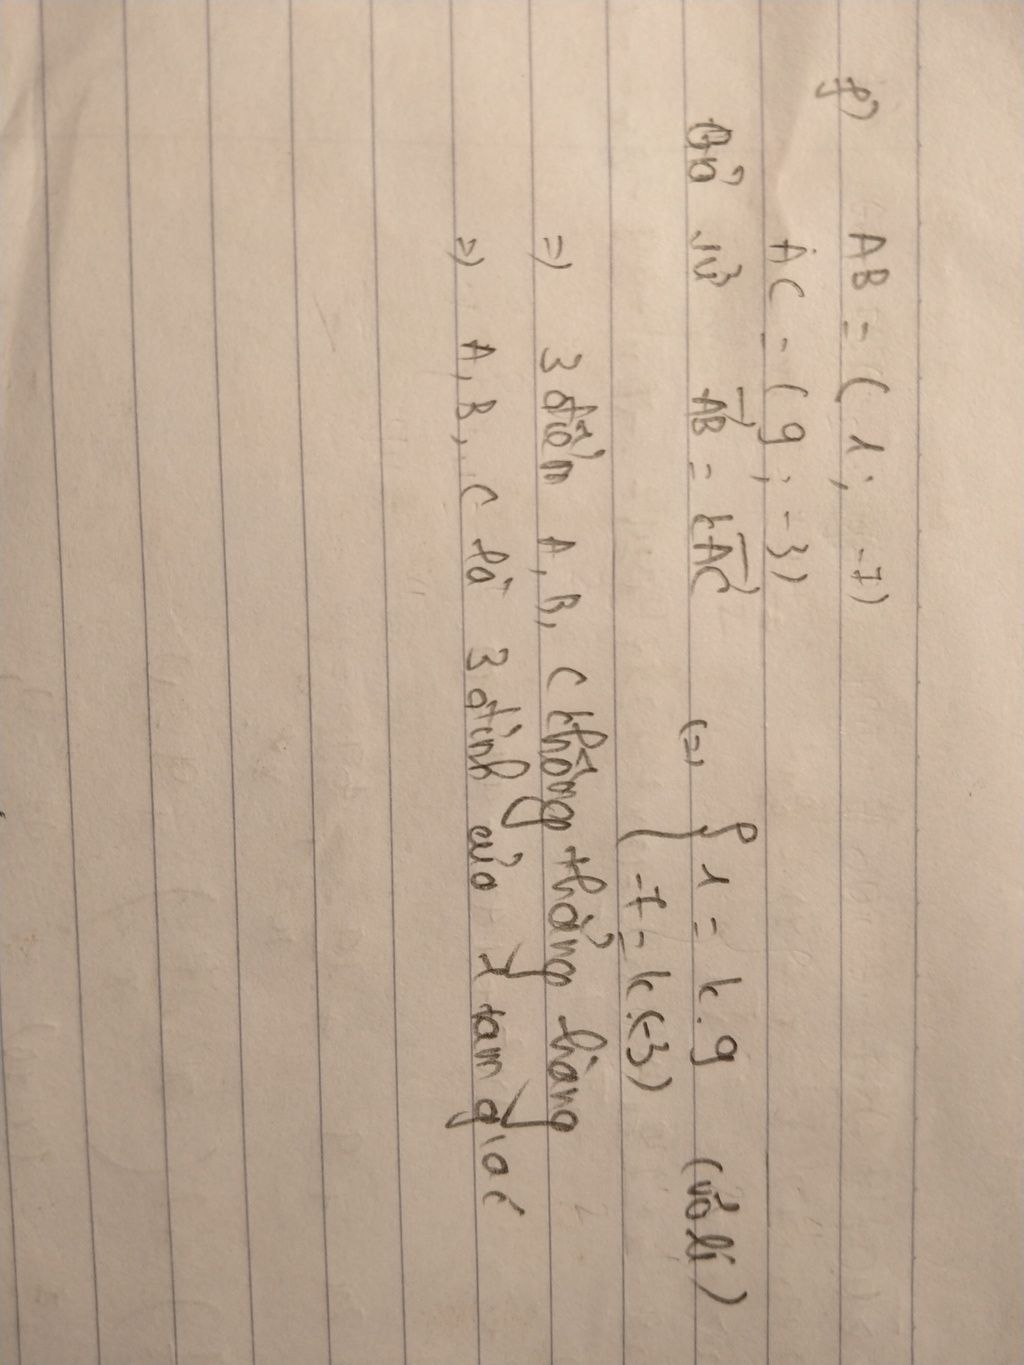 f) AB = ( 1 ; -7)
AC = ( 9 ; -3)
Giả sử AB = kAC (=) { 1 = k . 9 (vô lí)
-7 = k.(-3)
=) 3 điểm A, B, C không thẳng hàng
=) A, B, C là 3 đỉnh của 1 tam giác